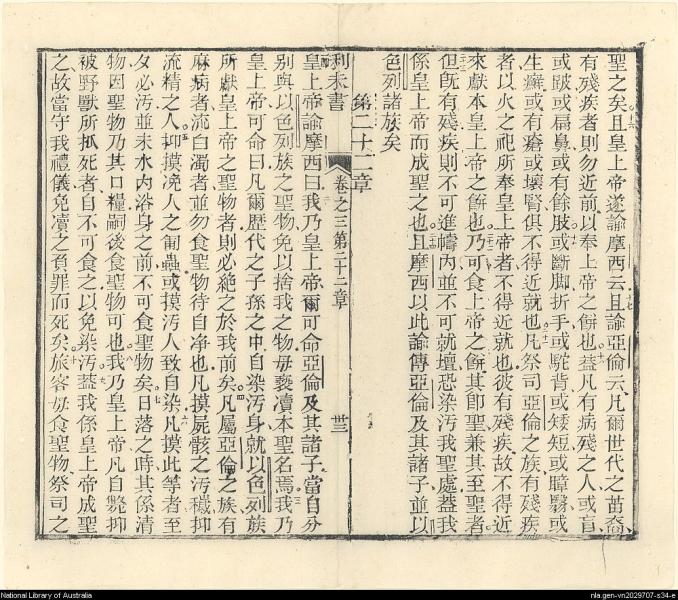 聖之矣且皇上帝遂諭摩西云且諭亞倫云凡爾世代之苗裔
有殘疾者則勿近前以奉上帝之餅也蓋凡有病殘之人或盲
或跛或扁鼻或有餘肢或斷脚折手或駝背或矮短或瞕翳或
生癬或有瘡或壞腎俱不得近就也凡祭司亞倫之族有殘疾
者以火之祀所奉皇上帝者不得近就也彼有殘疾故不得近
來獻本皇上帝之餅也乃可食上帝之餅其即聖兼其至聖者
但既有殘疾則不可進幬內並不可就壇恐染汚我聖處蓋我
係皇上帝而成聖之也且摩西以此諭傳亞倫及其諸子並以
色列諸族矣
第二十二章
利未書 卷之三第二十二章 卅三
皇上帝諭摩西曰我乃皇上帝爾可命亞倫及其諸子當自分
別與以色列族之聖物免以捨我之物毋褻瀆本聖名焉我乃
皇上帝可命曰凡爾歷代之子孫之中自染汚身就以色列族
所獻皇上帝之聖物者則必絕之於我前矣凡屬亞倫之族有
麻病者流白濁者並勿食聖物待自净也凡摸屍骸之汚穢抑
流精之人抑摸凂人之匍蟲或摸汚人致自染凡摸此等者至
夕必汚並未水內浴身之前不可食聖物矣日落之時其係清
物因聖物乃其口糧嗣後食聖物可也我乃皇上帝凡自斃抑
被野獸所抓死者自不可食之以免染汚蓋我係皇上帝成聖
之故當守我禮儀免瀆之負罪而死矣旅客毋食聖物祭司之
National Library of Australia
nla.gen-vn2029707-s34-e